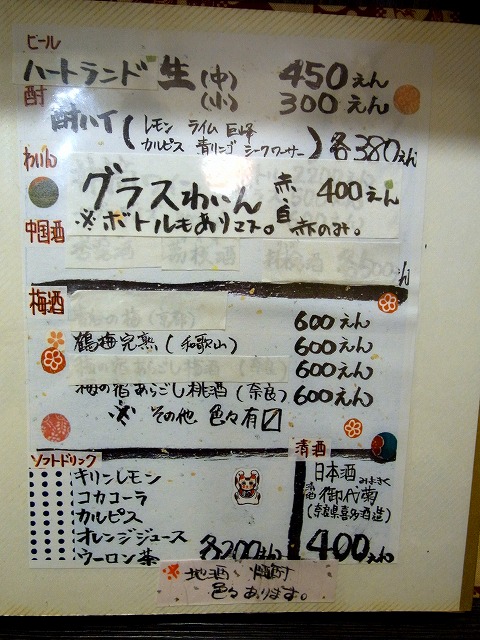 ビール
ハートランド 生 (中) 450えん
(小) 300えん
酎
酎ハイ (レモン ライム 巨峰
カルピス 青リンゴ シークワーサー) 各380えん
わいん
グラスわいん 赤・白 400えん
※ボトルもあります。赤のみ。
中国酒
梅酒
600えん
鶴梅完熟(和歌山) 600えん
600えん
梅の宿あらごし桃酒(奈良) 600えん
※ その他 色々有〼
ソフトドリンク
キリンレモン
コカコーラ
カルピス
オレンジジュース
ウーロン茶 各200えん
清酒
日本酒
みよきく
御代菊
(奈良県喜多酒造)
400えん
地酒、焼酎
色々あります。